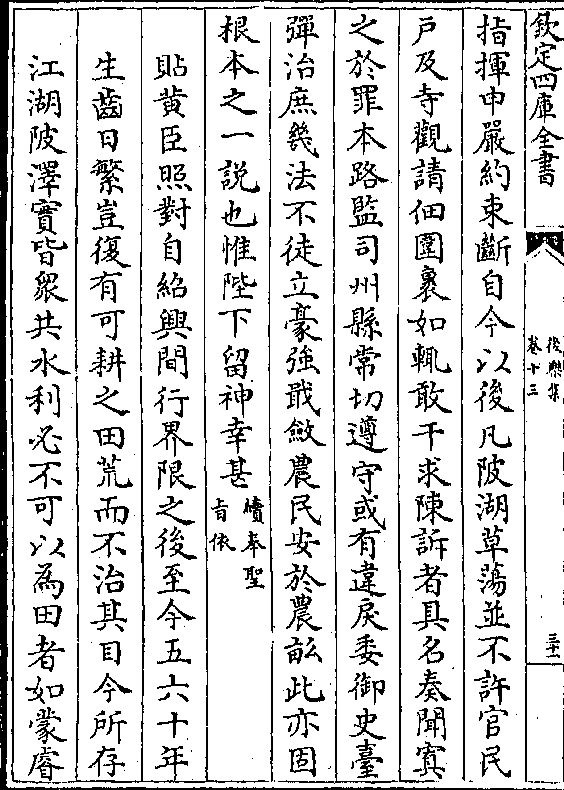 欽定四庫全書
後樂集
卷十三
三十一
指揮申嚴約束斷自今以後凡陂湖草蕩並不許官民
戶及寺觀請佃圍裹如輒敢干求陳訴者具名奏聞寘
之於罪本路監司州縣常切遵守或有違戾委御史臺
彈治庶幾法不徒立豪強戢斂農民安於農畝此亦固
根本之一說也惟陛下留神幸甚續奉聖旨依
貼黃臣照對自紹興間行界限之後至今五六十年
生齒日繁豈復有可耕之田荒而不治其目今所存
江湖陂澤實皆眾共水利必不可以為田者如蒙睿